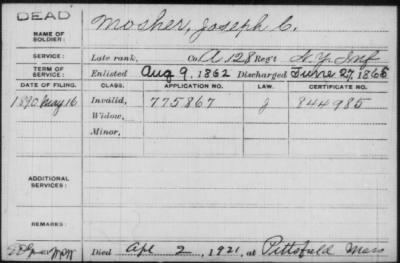 DEAD
NAME OF SOLDIER: Mosher, Joseph C.
SERVICE: Late rank, Co. A 128 Reg't N.Y. Inf
TERM OF SERVICE: Enlisted Aug 9, 1862 Discharged June 27, 1865
DATE OF FILING. CLASS. APPLICATION NO. LAW. CERTIFICATE NO.
1890 May 16 Invalid, 775867 J 844985
Widow,
Minor,
ADDITIONAL SERVICES:
REMARKS:
Died Apl 2, 1921, at Pittsfield Mass